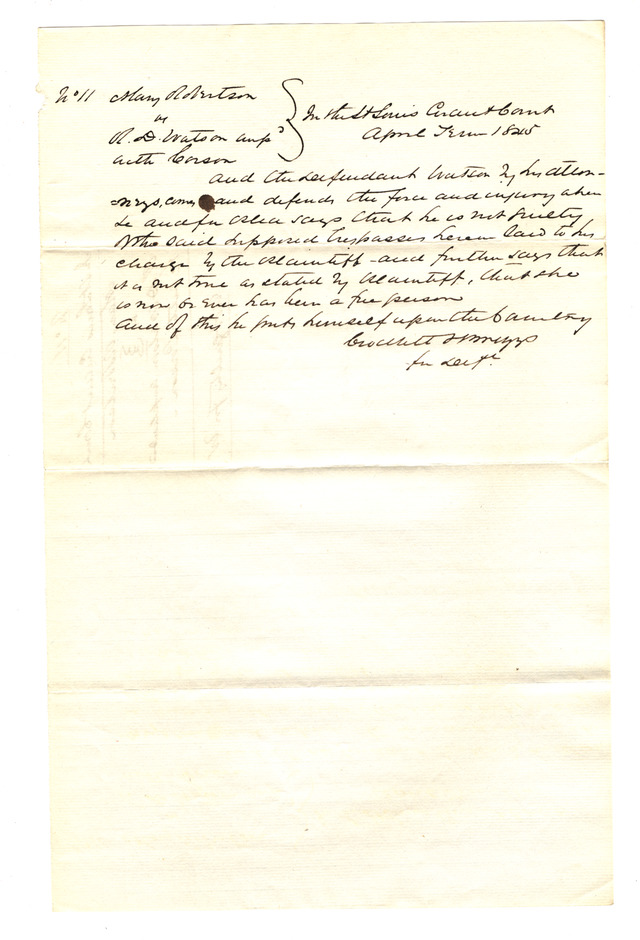 No 11 Mary Robertson
vs
R. D. Watson impd
with Corson
In the St Louis Circuit Court
April Term 1845
And the Defendant Watson by his attor-
-neys, comes and defends the force and injury when
&c and for plea says that he is not Guilty
of the said supposed trespasses herein laid to his
charge by the Plaintiff - and further says that
it is not true as stated by Plaintiff, that she
is now or ever has been a free person
and of this he puts himself upon the Country
Crockett & Briggs
for Deft.